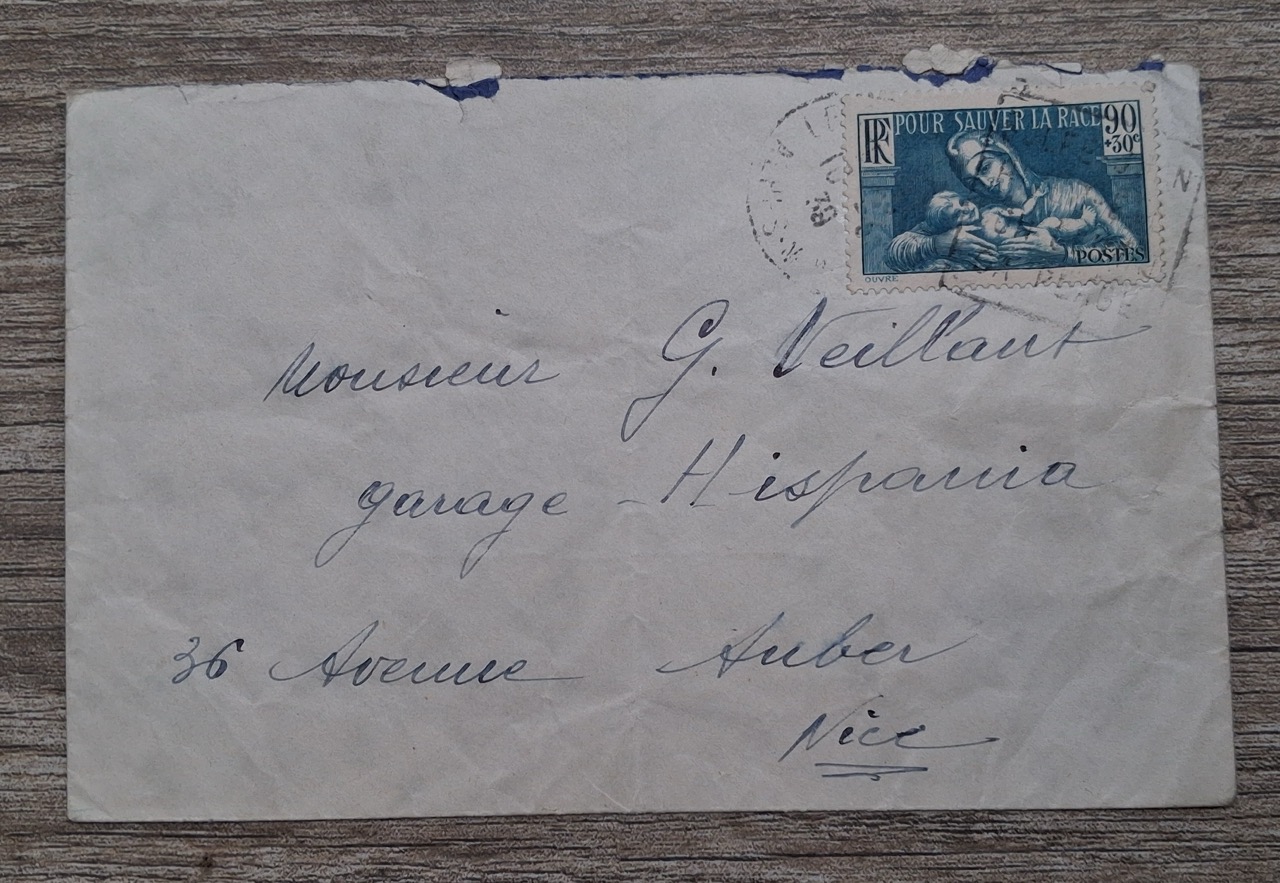 RF POUR SAUVER LA RACE 90
+30c
POSTES
OUVRÉ
Monsieur G. Veillant
garage - Hispania
36 Avenue Auber
Nice